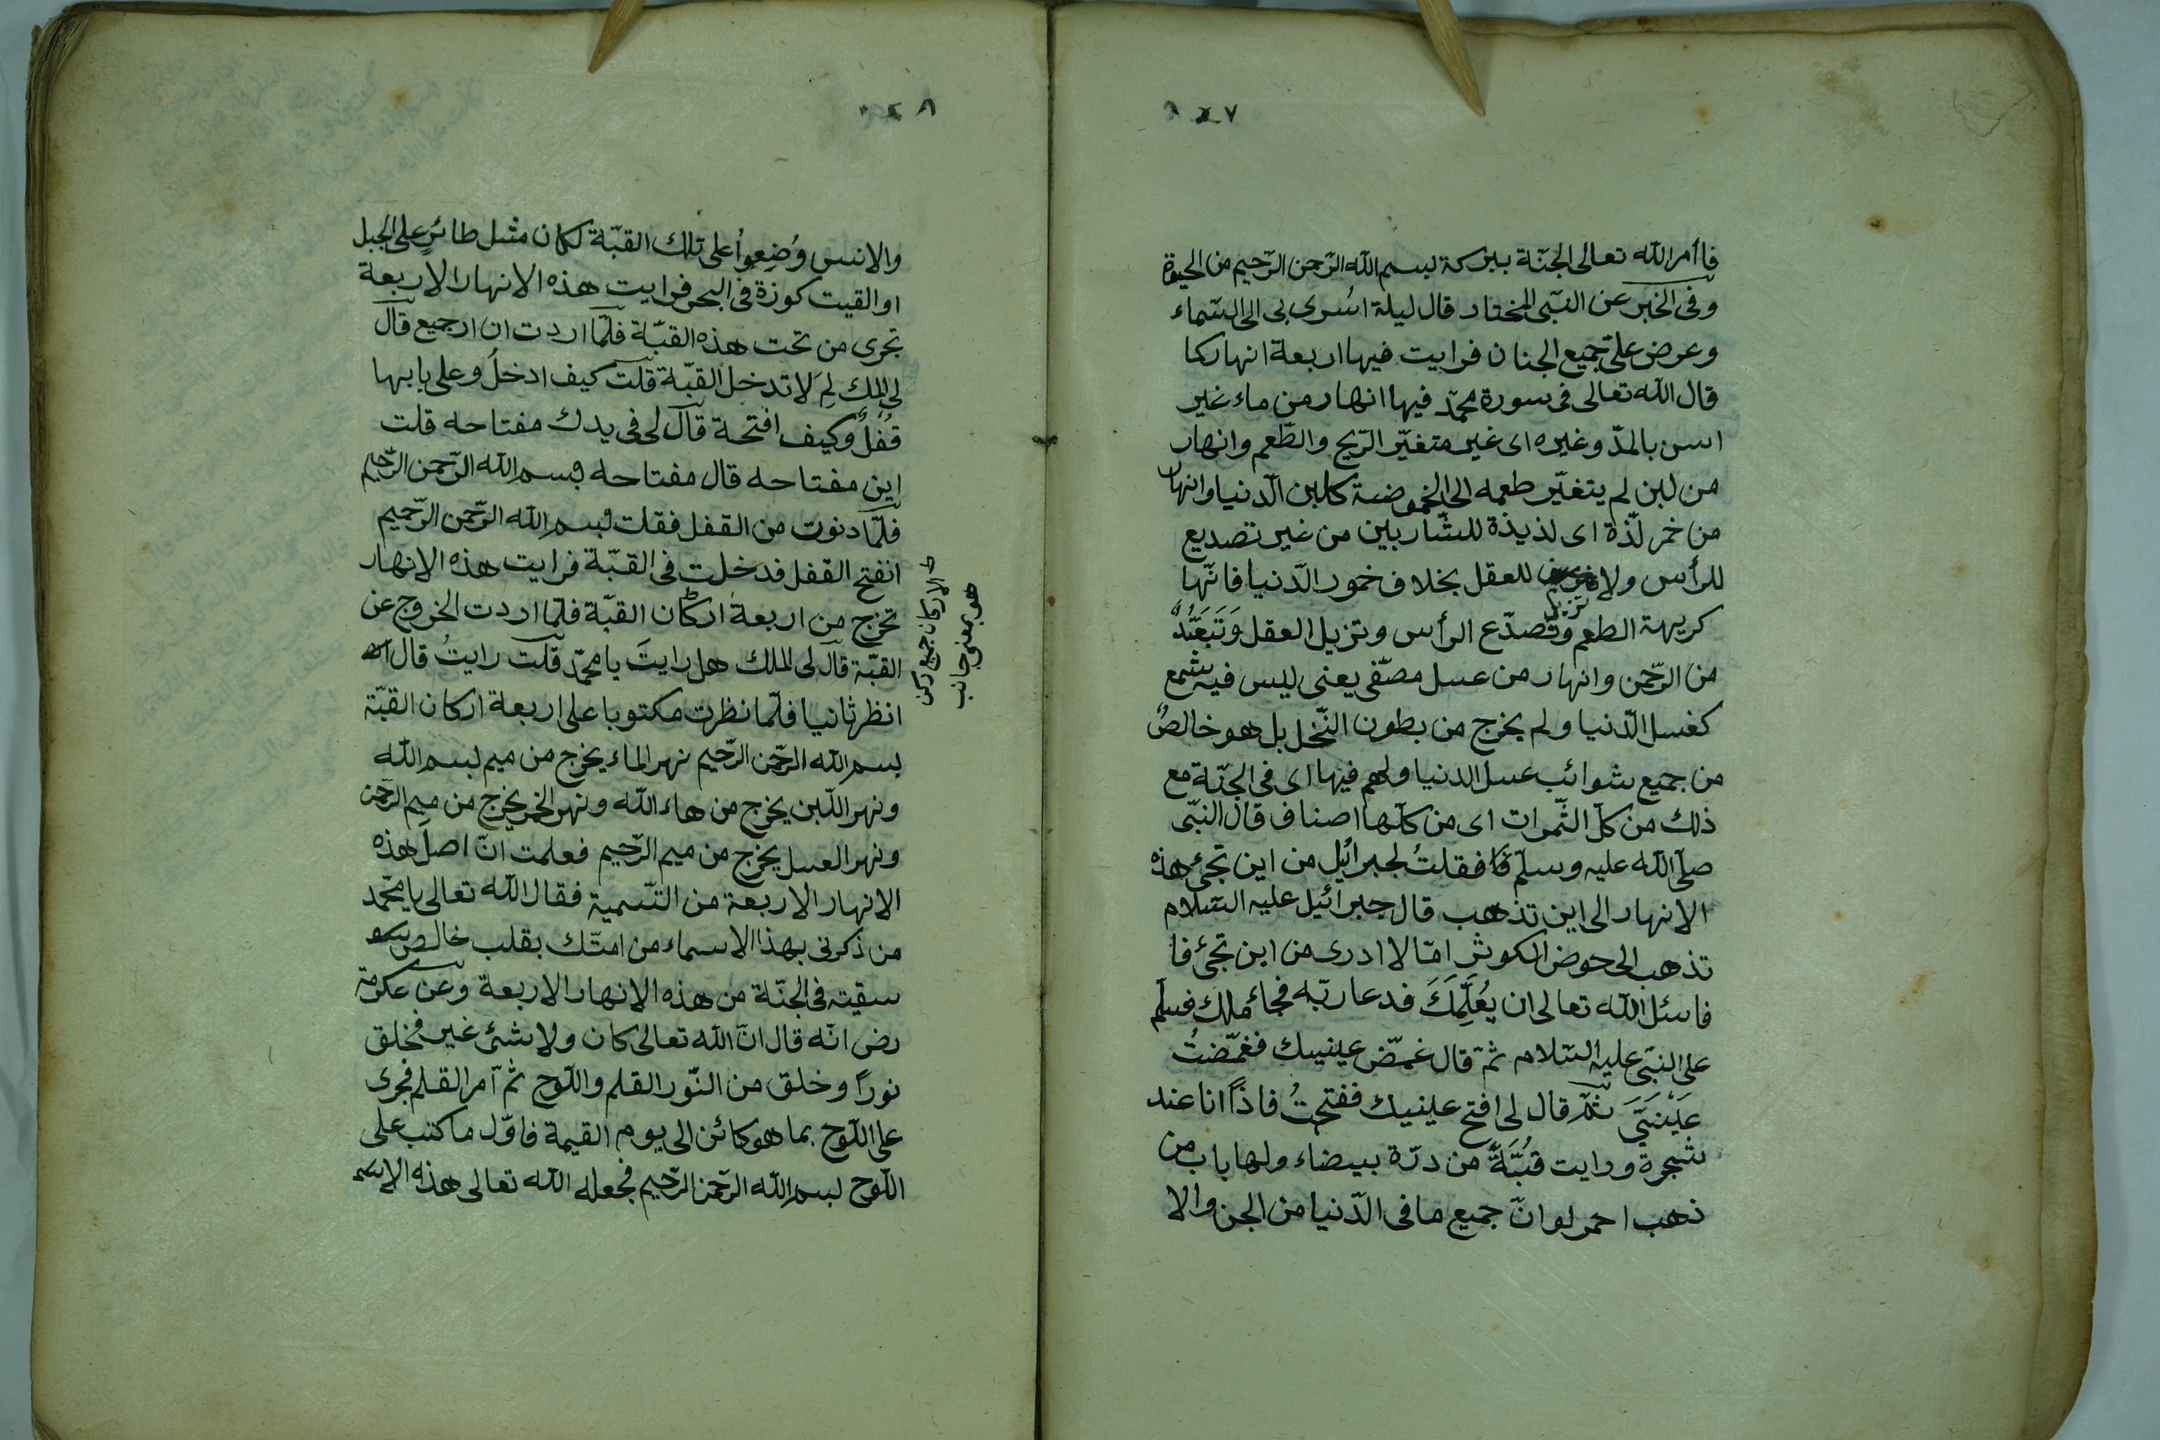 ٨٤٧
فا أمر الله تعالى الجنّة ببركة بسم الله الرّحمن الرّحيم من الحيوة
وفى الخبر عن النبّى المختار قال ليلة اسُرى بى الى السّماء
وعرض علىّ جميع الجنان فرايت فيها اربعة انهار كما
قال الله تعالى فى سورة محمّد فيها انهار من ماء غير
اسن بالمدّ وغيره اى غير متغيّر الرّيح والطّعم وانهار
من لبن لم يتغيّر طعمه الى الخموضة كلبن الدّنيا وانهار
من خمر لذّة اى لذيذة للشّاربين من غير تصديع
للرأس ولا للعقل بخلاف خمور الدّنيا فانّها
كريهة الطعم وتصدّع الرأس وتزيل العقل وَتَبَعَّدُ
من الرّحمن وانهار من عسل مصفّى يعنى ليس فيه شمع
كغسل الدّنيا ولم يخرج من بطون النّحل بل هو خالصٌ
من جميع شوائب عسل الدنيا ولهم فيها اى فى الجنّة مع
ذلك من كلّ الثّمرات اى من كلّها اصناف قال النبّى
صلّى الله عليه وسلّم فا فقلتُ لجبرائيل من اين تجئ هذه
الانهار الى اين تذهب قال جبرائيل عليه السّلام
تذهب الى حوض الكوثر امّا لا ادرى من اين تجئ فا
فاسئل الله تعالى ان يُعَلِّمَكَ فدعا ربّه فجاء ملك فسلّم
على النبّى عليه السّلام ثمّ قال غمّض عينيك فغمّضتُ
عَيْنَىَّ ثمّ قال لى افتح عينيك ففتحتُ فاذاً انا عند
شجرة ورايت قُبَّةً من درّة بيضاء ولها باب من
ذهب احمر لو انّ جميع ما فى الدّنيا من الجن والا
٨
والانس وُضِعواُ على تلك القبّة لكان مثل طائرٍ على الجبل
او القيت كوزة فى البحر فرايت هذه الانهار الاربعة
تجرى من تحت هذه القبّة فلمّا اردت ان ارجيع قال
لى الملك لِمَ لا تدخل القبّة قلت كيف ادخلُ وعلى بابها
قُفْلٌ وكيف افتحة قال لى فى يدك مفتاحه قلت
اين مفتاحه قال مفتاحه بسم الله الرّحمن الرّحيم
فلمّا دنوت من القفل فقلت بسم الله الرّحمن الرّحيم
انفتح القفل فدخلت فى القبّة فرايت هذه الانهار
تخرج من اربعة اركان القبّة فلمّا اردت الخروج عن
القبّة قال لى الملك هل رايتَ يا محمّد قلت رايتُ قال
انظر ثانيا فلمّا نظرت مكتوبا على اربعة اركان القبّة
بسم الله الرّحمن الرّحيم نهر الماء يخرج من ميم بسم الله
ونهر اللّبن يخرج من هاء الله ونهر الخمر يخرج من ميم الرّحمن
ونهر العسل يخرج من ميم الرّحيم فعلمت انّ اصل هذه
الانهار الاربعة من التّسمية فقال الله تعالى يا محمّد
من ذكرنى بهذا الاسماء من امتّك بقلب خالص
سقيته فى الجنّة من هذه الانهار الاربعة وعن عكرمة
رضى انّه قال انّ الله تعالى كان ولا شئ غير فخلق
نوراً وخلق من النّور القلم واللّوح ثم آمر القلم فجرى
على اللّوح بما هو كائن الى يوم القيمة فاوّل ما كتب على
اللّوح بسم الله الرّحمن الرّحيم فجعله الله تعالى هذه الاسم
الاركان جميع ركن
هو بمعنى جانب